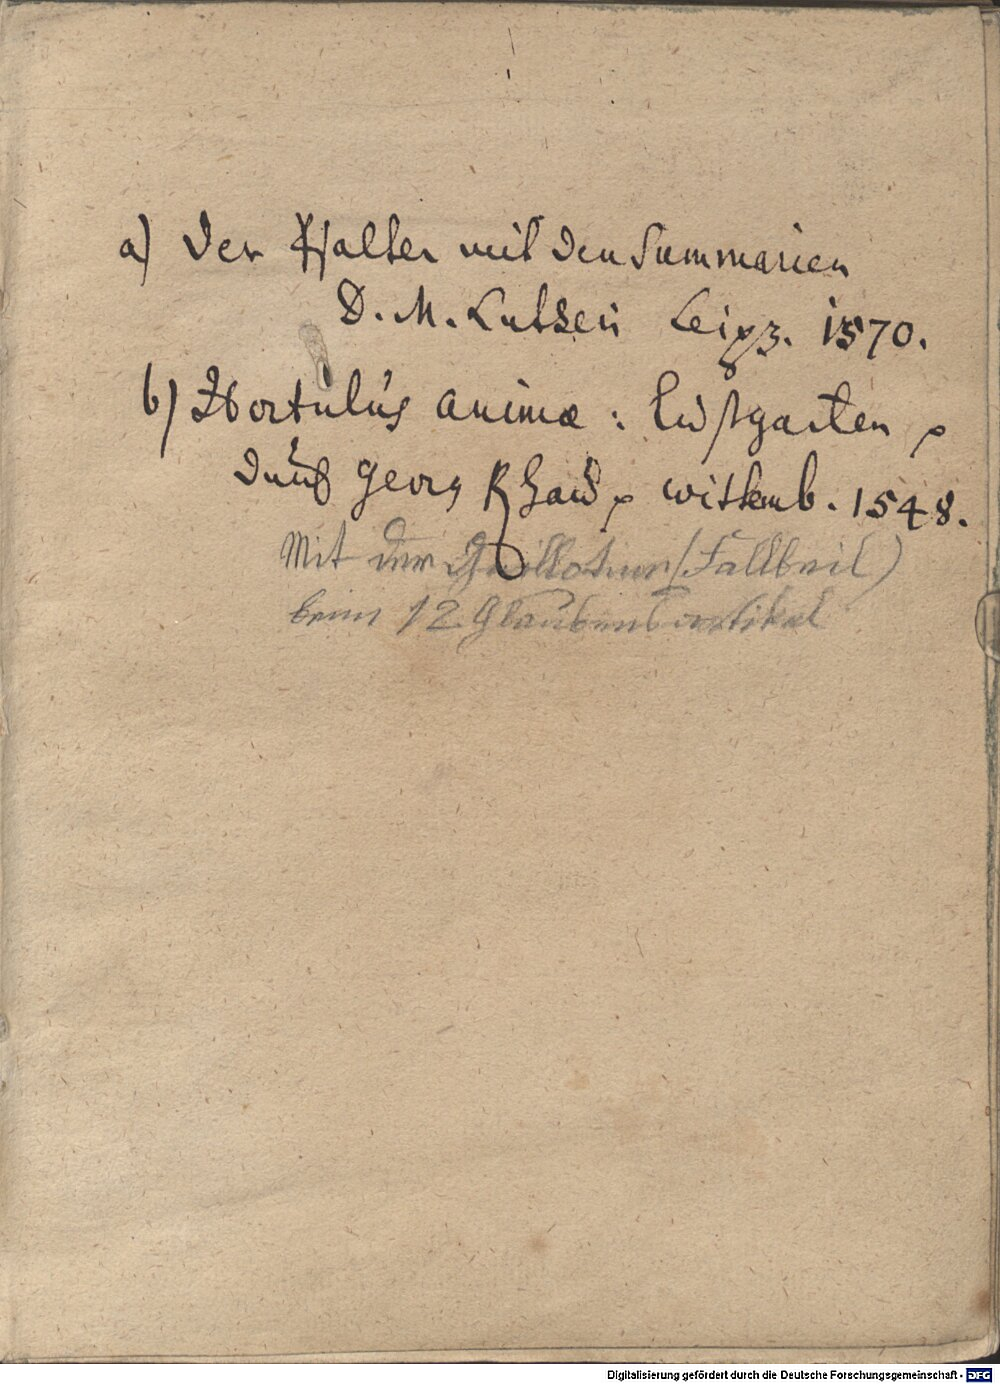 a) Der Psalter mit den Summarien
D. M. Lutheri Leipz. 1570.
b) Hortulus animæ : Lustgarten
durch Georg Rhaw wittemb. 1548.
Mit der Guillotine (Fallbeil)
beim 12 Glaubensartikel
Digitalisierung gefördert durch die Deutsche Forschungsgemeinschaft - DFG